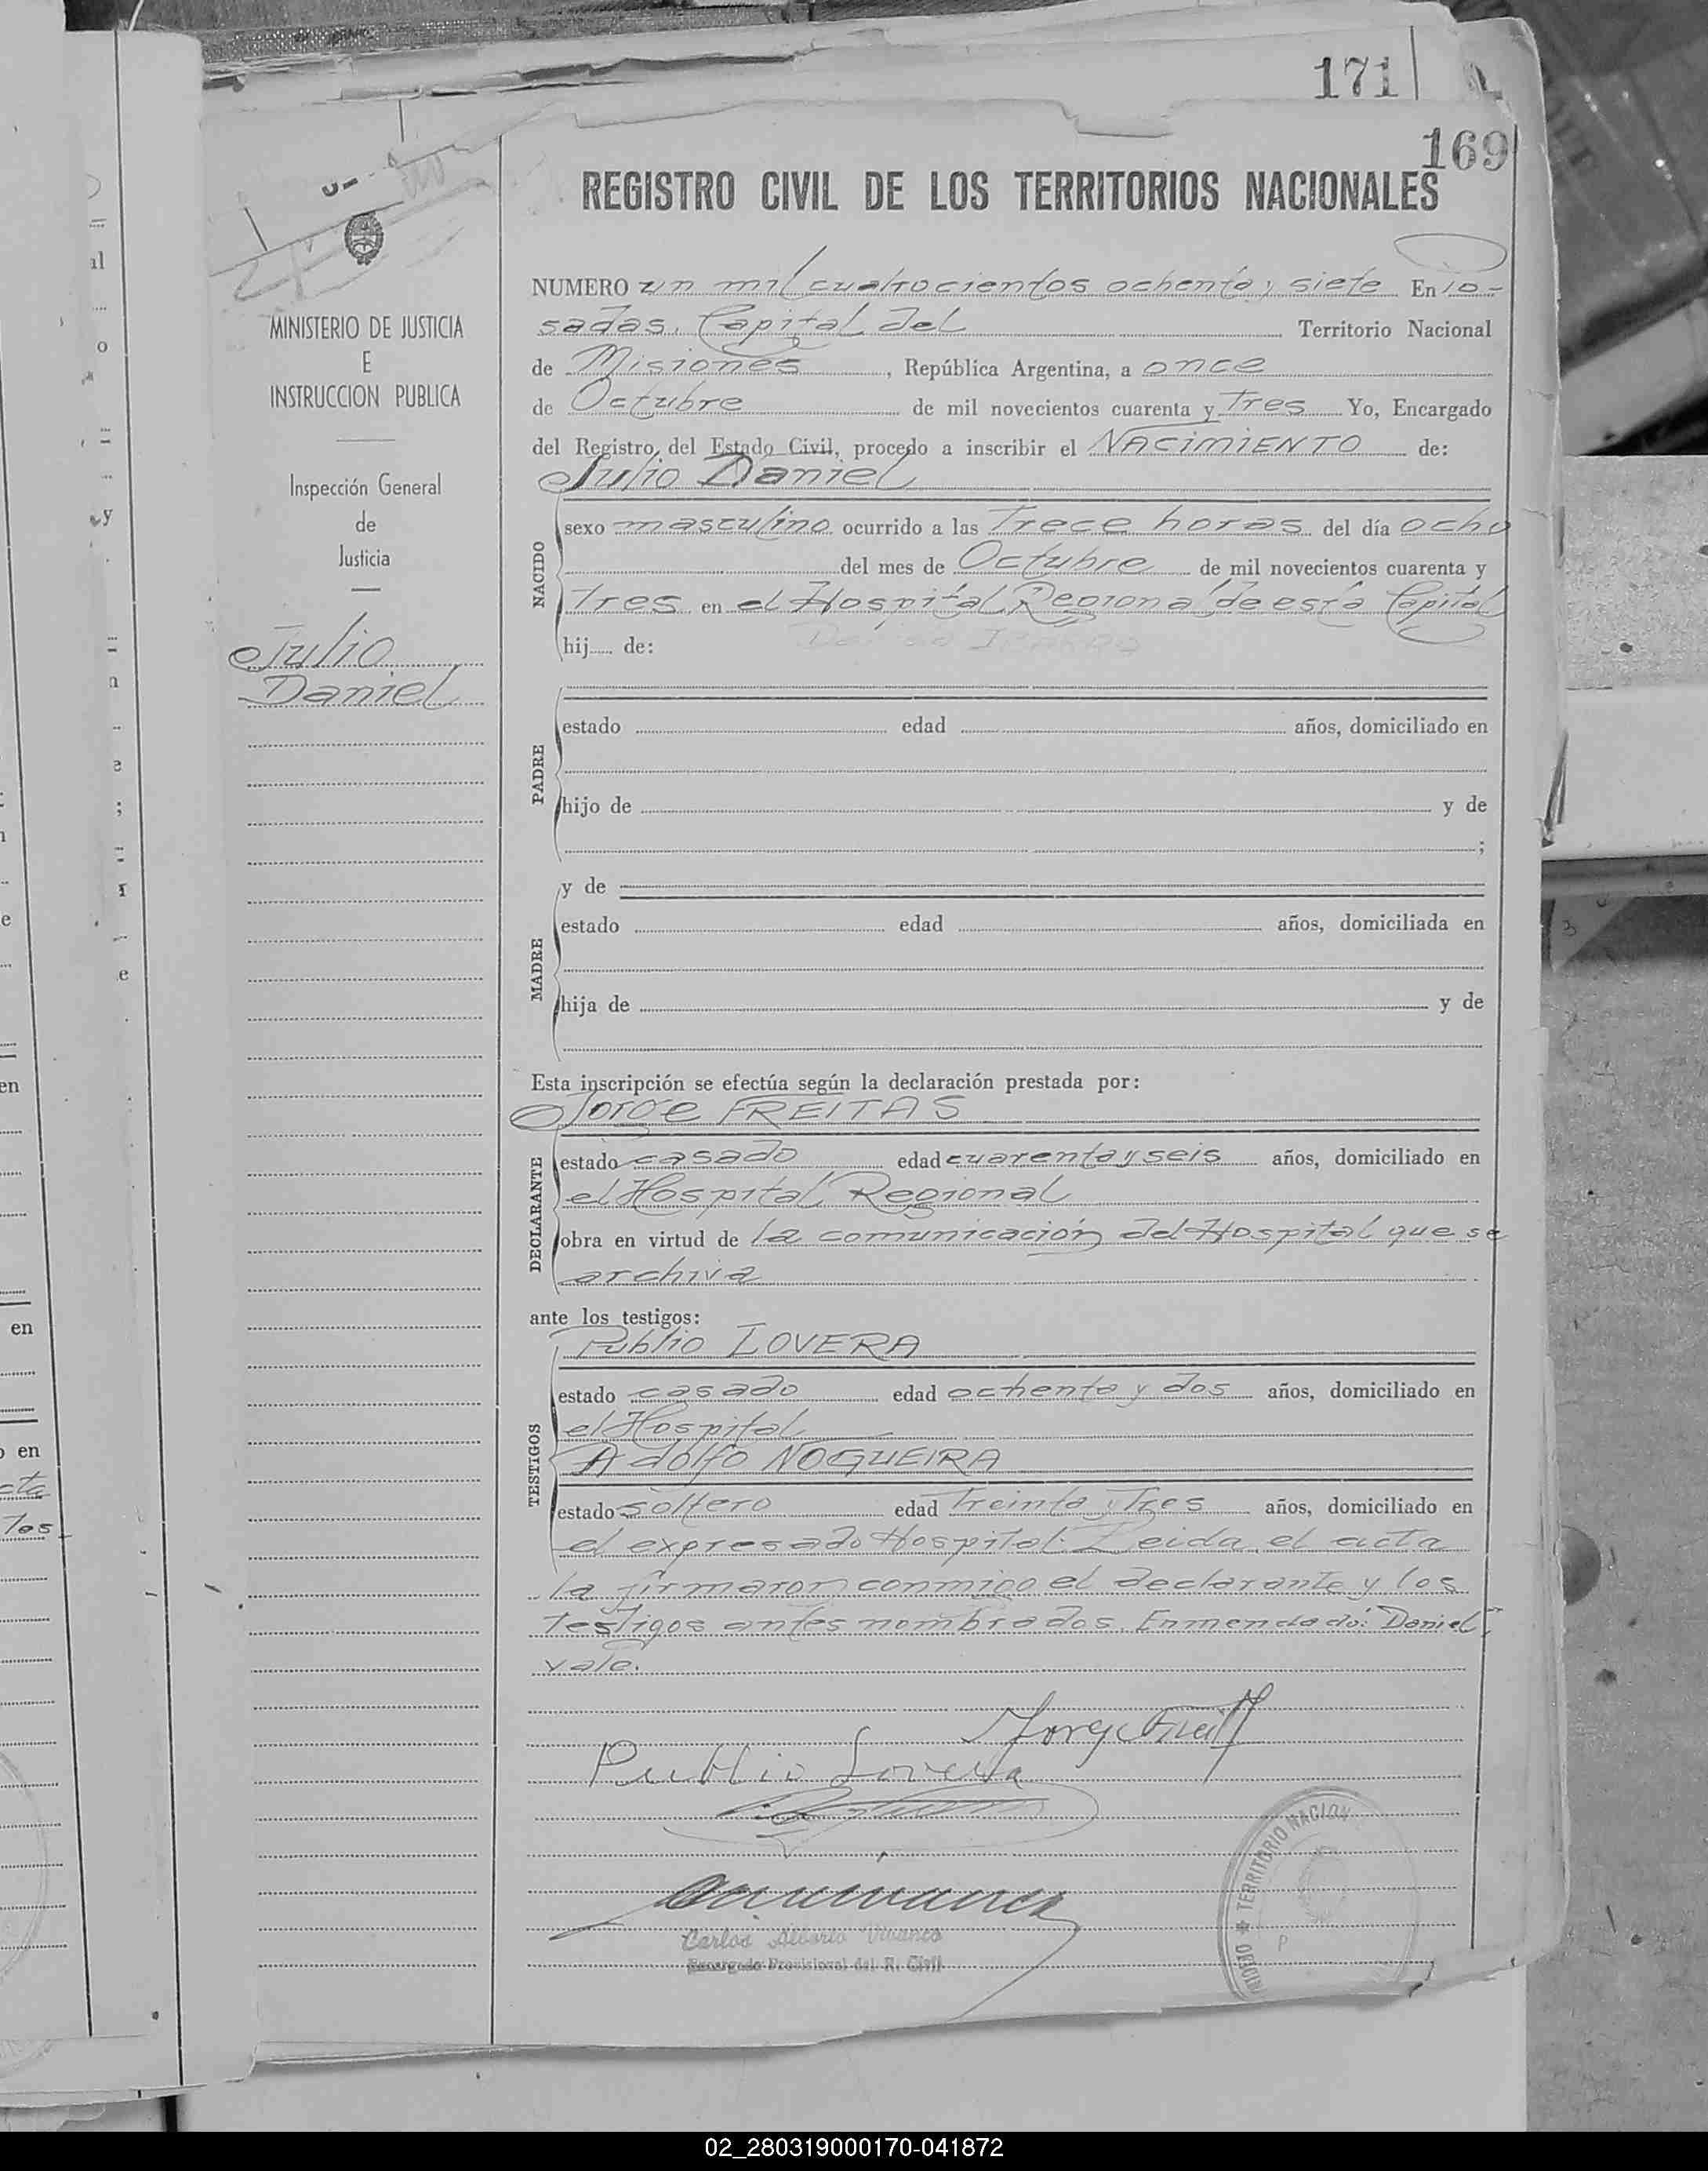 171
169
REGISTRO CIVIL DE LOS TERRITORIOS NACIONALES
MINISTERIO DE JUSTICIA
E
INSTRUCCION PUBLICA
Inspección General
de
Justicia
Julio
Daniel
NUMERO un mil cuatrocientos ochenta y siete En Po-
sadas, Capital del Territorio Nacional
de Misiones, República Argentina, a once
de Octubre de mil novecientos cuarenta y Tres Yo, Encargado
del Registro del Estado Civil, procedo a inscribir el NACIMIENTO de:
Julio Daniel
NACIDO
sexo masculino ocurrido a las Trece horas del día ocho
del mes de Octubre de mil novecientos cuarenta y
Tres en el Hospital Regional de esta Capital
hij de:
PADRE
estado edad años, domiciliado en
hijo de y de
;
MADRE
y de
estado edad años, domiciliada en
hija de y de
Esta inscripción se efectúa según la declaración prestada por:
Jorge FREITAS
DECLARANTE
estado casado edad cuarenta y seis años, domiciliado en
el Hospital Regional
obra en virtud de la comunicación del Hospital que se
archiva
ante los testigos:
Publio LOVERA
TESTIGOS
estado casado edad ochenta y dos años, domiciliado en
el Hospital
Adolfo NOGUEIRA
estado soltero edad treinta y Tres años, domiciliado en
el expresado Hospital. Leida el acta
la firmaron conmigo el declarante y los
testigos antes nombrados. Enmendado: Daniel,
vale.
Publio Lovera
Carlos Alberto Vivanco
Encargado Provisional del R. Civil
TERRITORIO NACION
02_280319000170-041872